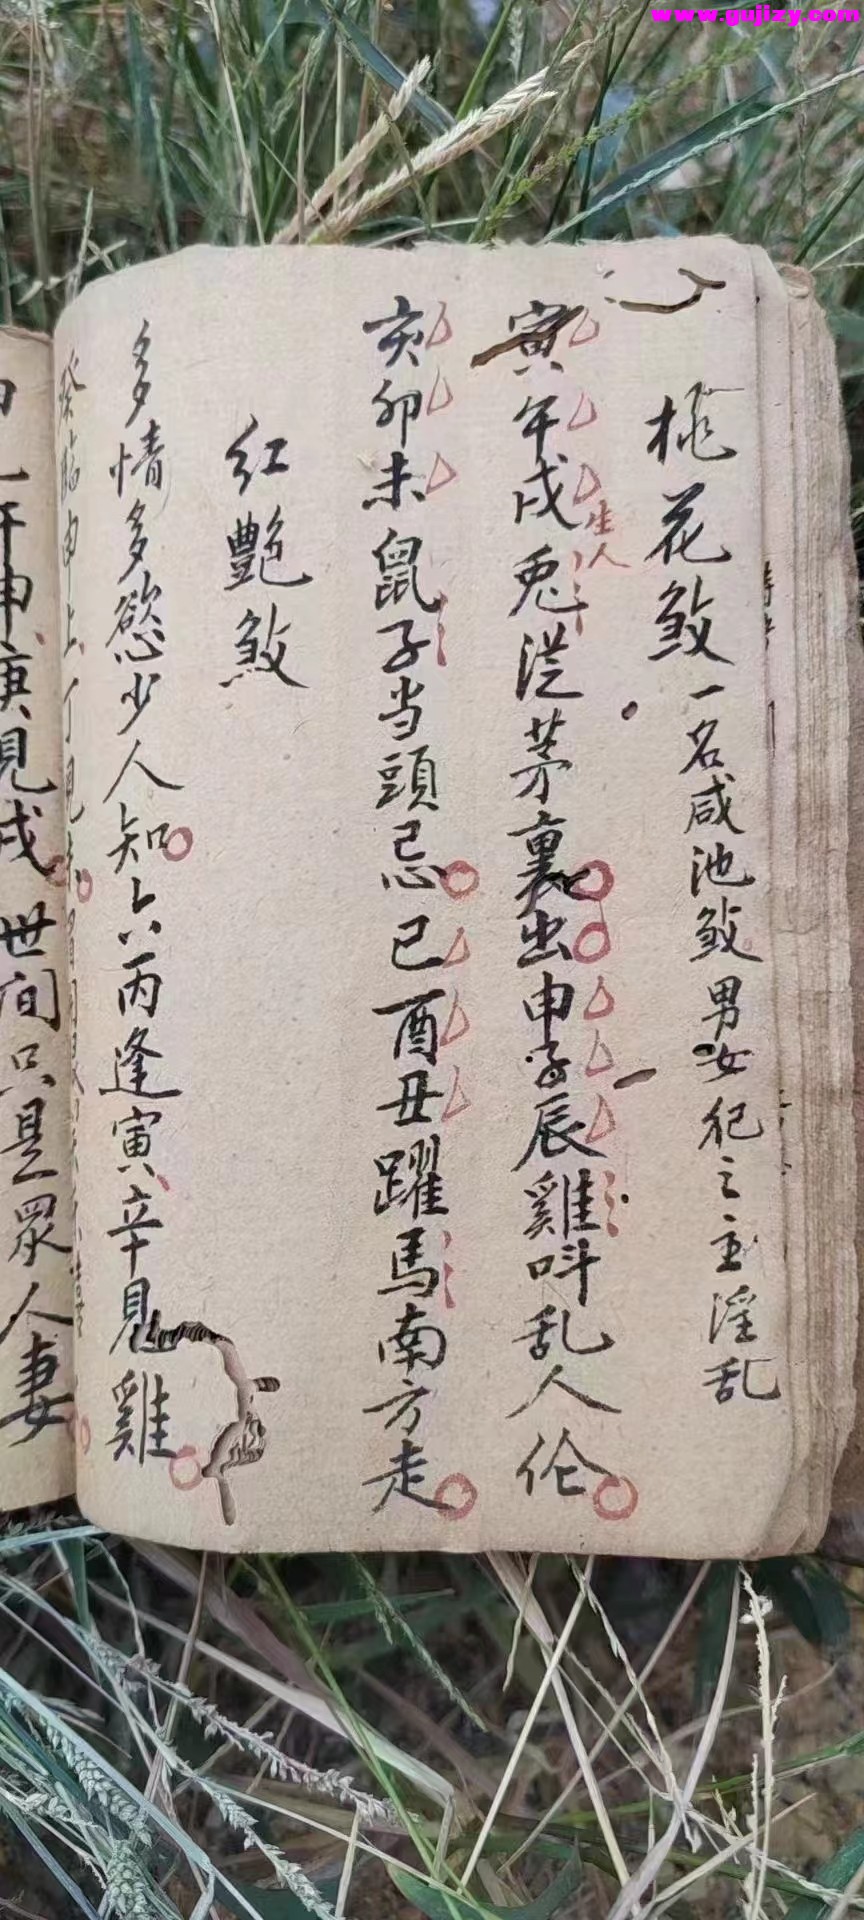 www.gujizy.com
桃花煞一名咸池煞男女犯之主淫乱
寅午戌兎従茅裏出申子辰雞呌乱人伦
生人
亥卯未鼠子当頭忌巳酉丑躍馬南方走
红艷煞
多情多慾少人知六丙逢寅辛見雞
癸臨申上丁見未
申庚見戌世间只是眾人妻